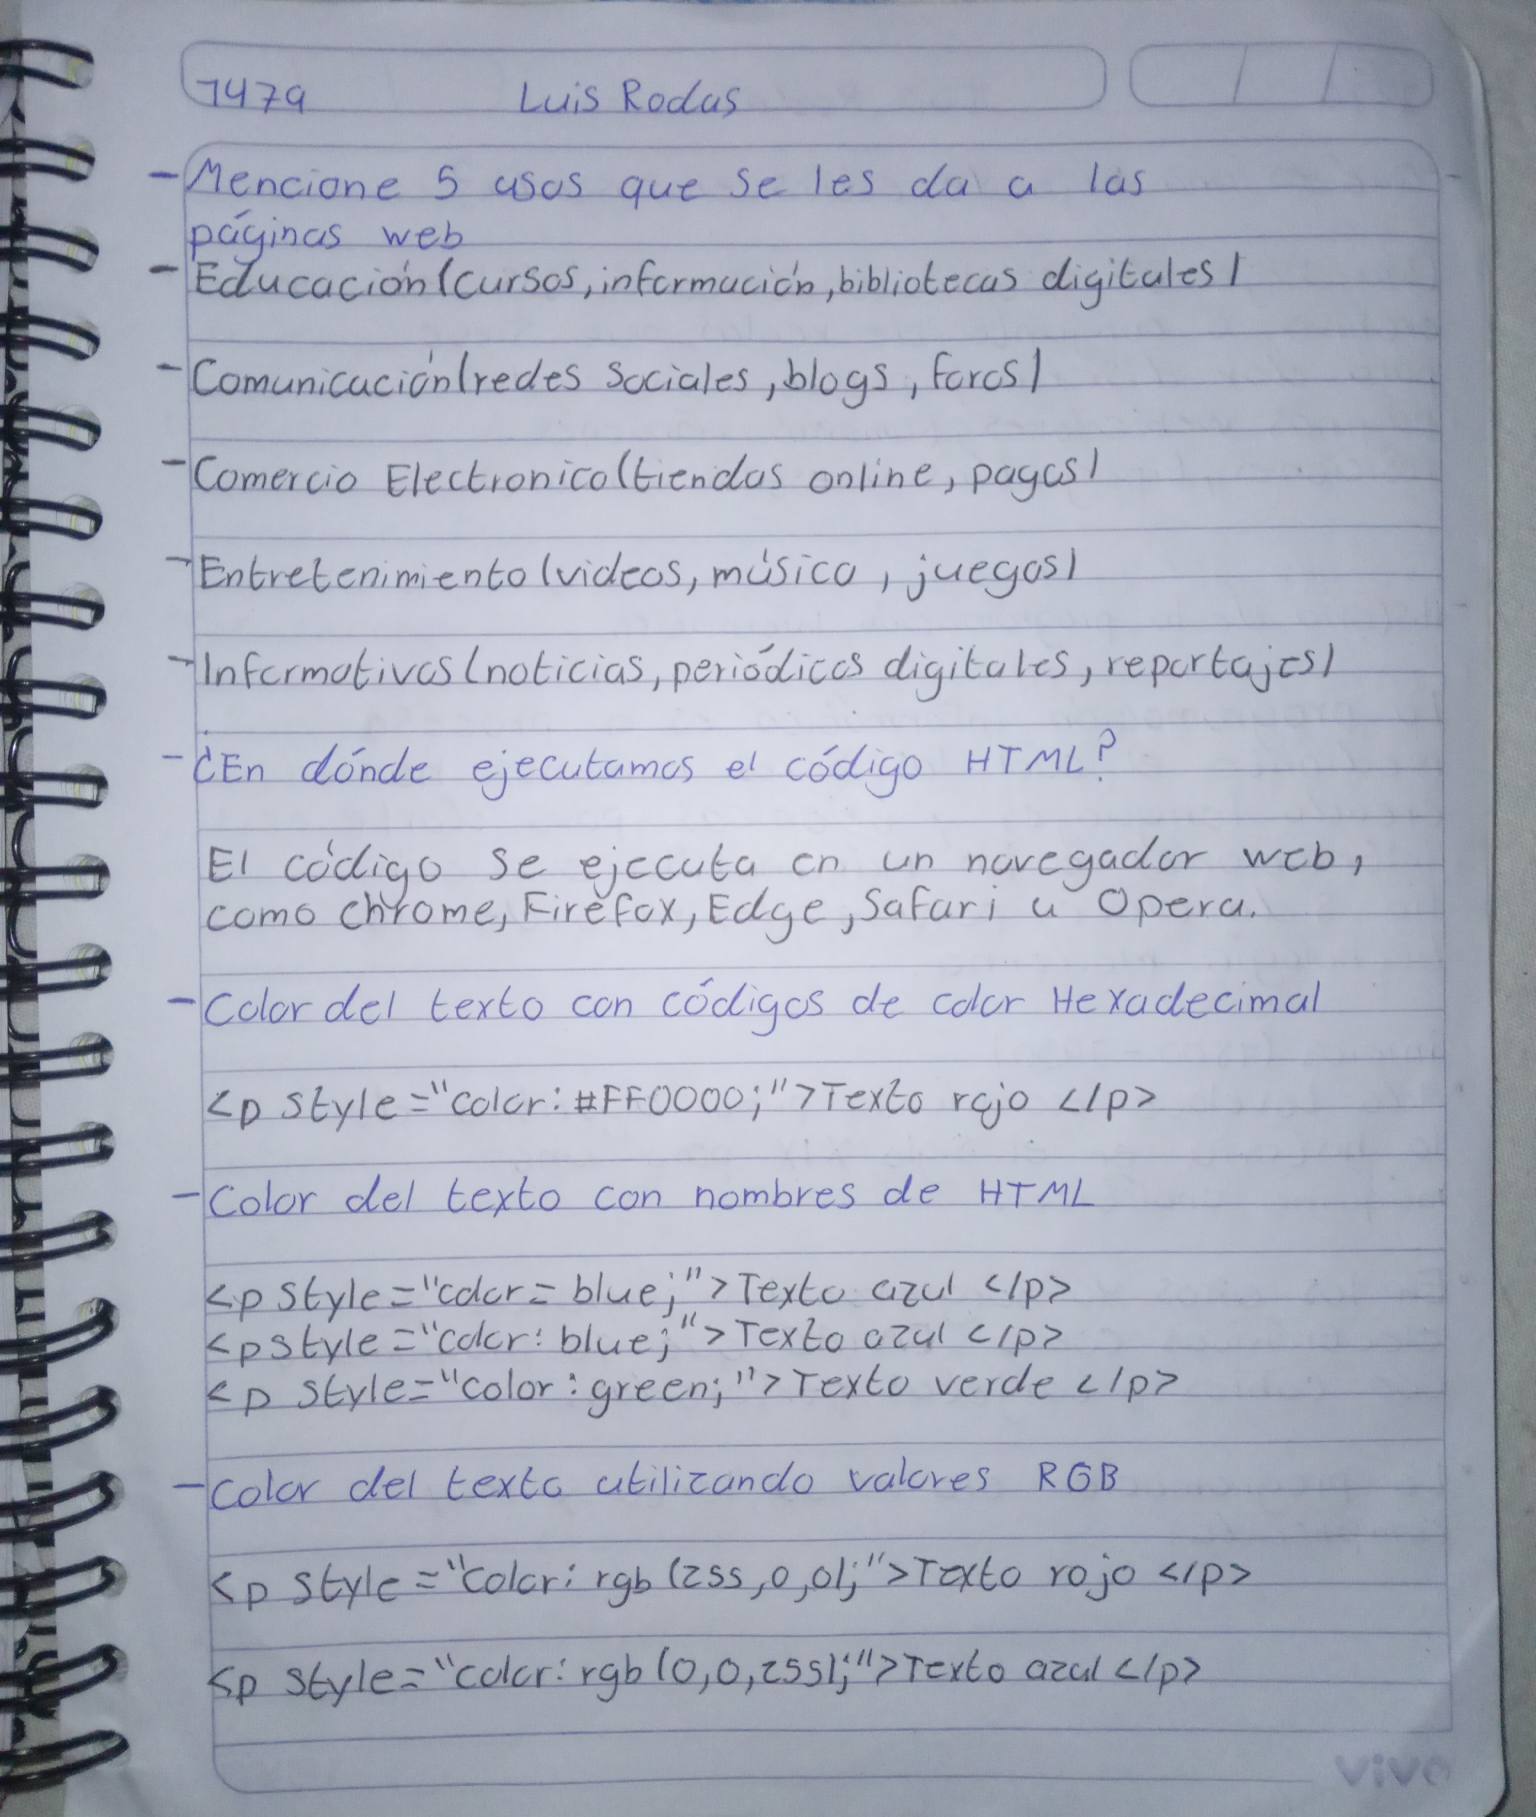 1479 Luis Rodas
- Mencione 5 usos que se les da a las
páginas web
- Educación (cursos, información, bibliotecas digitales)
- Comunicación (redes sociales, blogs, foros)
- Comercio Electronico (tiendas online, pagos)
- Entretenimiento (videos, música, juegos)
- Informativos (noticias, periódicos digitales, reportajes)
- ¿En dónde ejecutamos el código HTML?
El código se ejecuta en un navegador web,
como chrome, Firefox, Edge, Safari u Opera.
- Color del texto con códigos de color Hexadecimal
<p style="color: #FF0000;">Texto rojo </p>
- Color del texto con nombres de HTML
<p style="color= blue;">Texto azul </p>
<p style="color: blue;">Texto azul </p>
<p style="color: green;">Texto verde </p>
- Color del texto utilizando valores RGB
<p style="color: rgb (255,0,0);">Texto rojo </p>
<p style="color: rgb (0,0,255);">Texto azul </p>
vivo